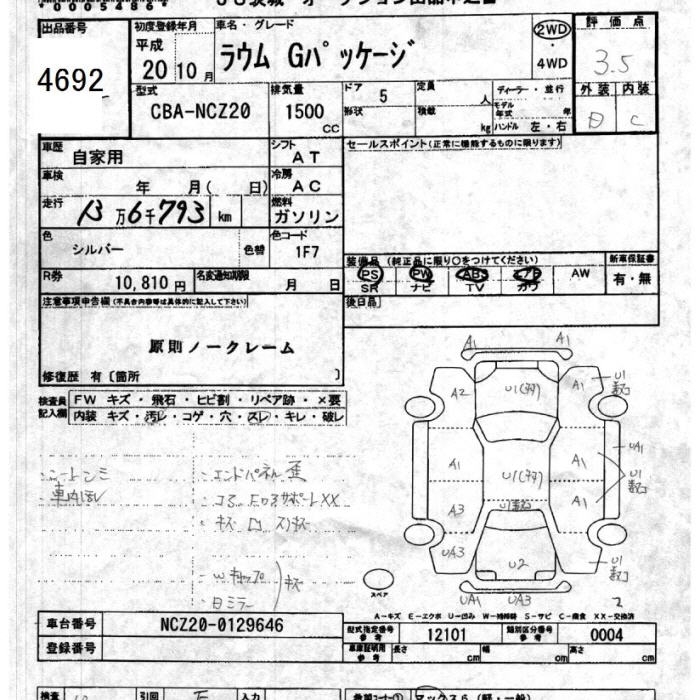 0005464
出品番号
4692
初度登録年月
平成
20 10 月
車名・グレード
ラウム Gパッケージ
2WD
4WD
評価点
3.5
外装 内装
C
型式
CBA-NCZ20
排気量
1500
CC
ドア
5
形状
定員
人
積載
kg
ディーラー・並行
モデル年式
年
ハンドル 左・右
車歴
自家用
シフト
AT
車検
年 月( 日)
冷房
AC
走行
13 万 6 千 793 km
燃料
ガソリン
色
シルバー
色替
色コード
1F7
R券
10,810 円
名変通知期限
月 日
セールスポイント(正常に機能するものに限ります)
装備品 (純正品に限り○をつけてください)
新車保証書
PS PW ABS エアB AW
SR ナビ TV カワ
有・無
後日品
注意事項申告欄(不具合内容等は具体的に記入して下さい)
原則ノークレーム
修復歴 有〔箇所 〕
検査員記入欄
FW キズ・飛石・ヒビ割・リペア跡・×要
内装 キズ・汚レ・コゲ・穴・スレ・キレ・破レ
シートシミ
車内汚レ
エンドパネル歪
コアサポートXX
キズ
Wキャップ
日ミラー
キズ
A1 A1
A2 U1
A1 A1
A3 A1
UA1
U1
UA3 U2 U1
UA1 UA3
2
スペア
A-キズ E-エクボ U-凹み W-補修跡 S-サビ C-腐食 XX-交換済
車台番号
NCZ20-0129646
登録番号
型式指定番号 参考
12101
類別区分番号 参考
0004
車庫証明用 参考
長さ cm 幅 cm 高さ cm
検査
引回
入力